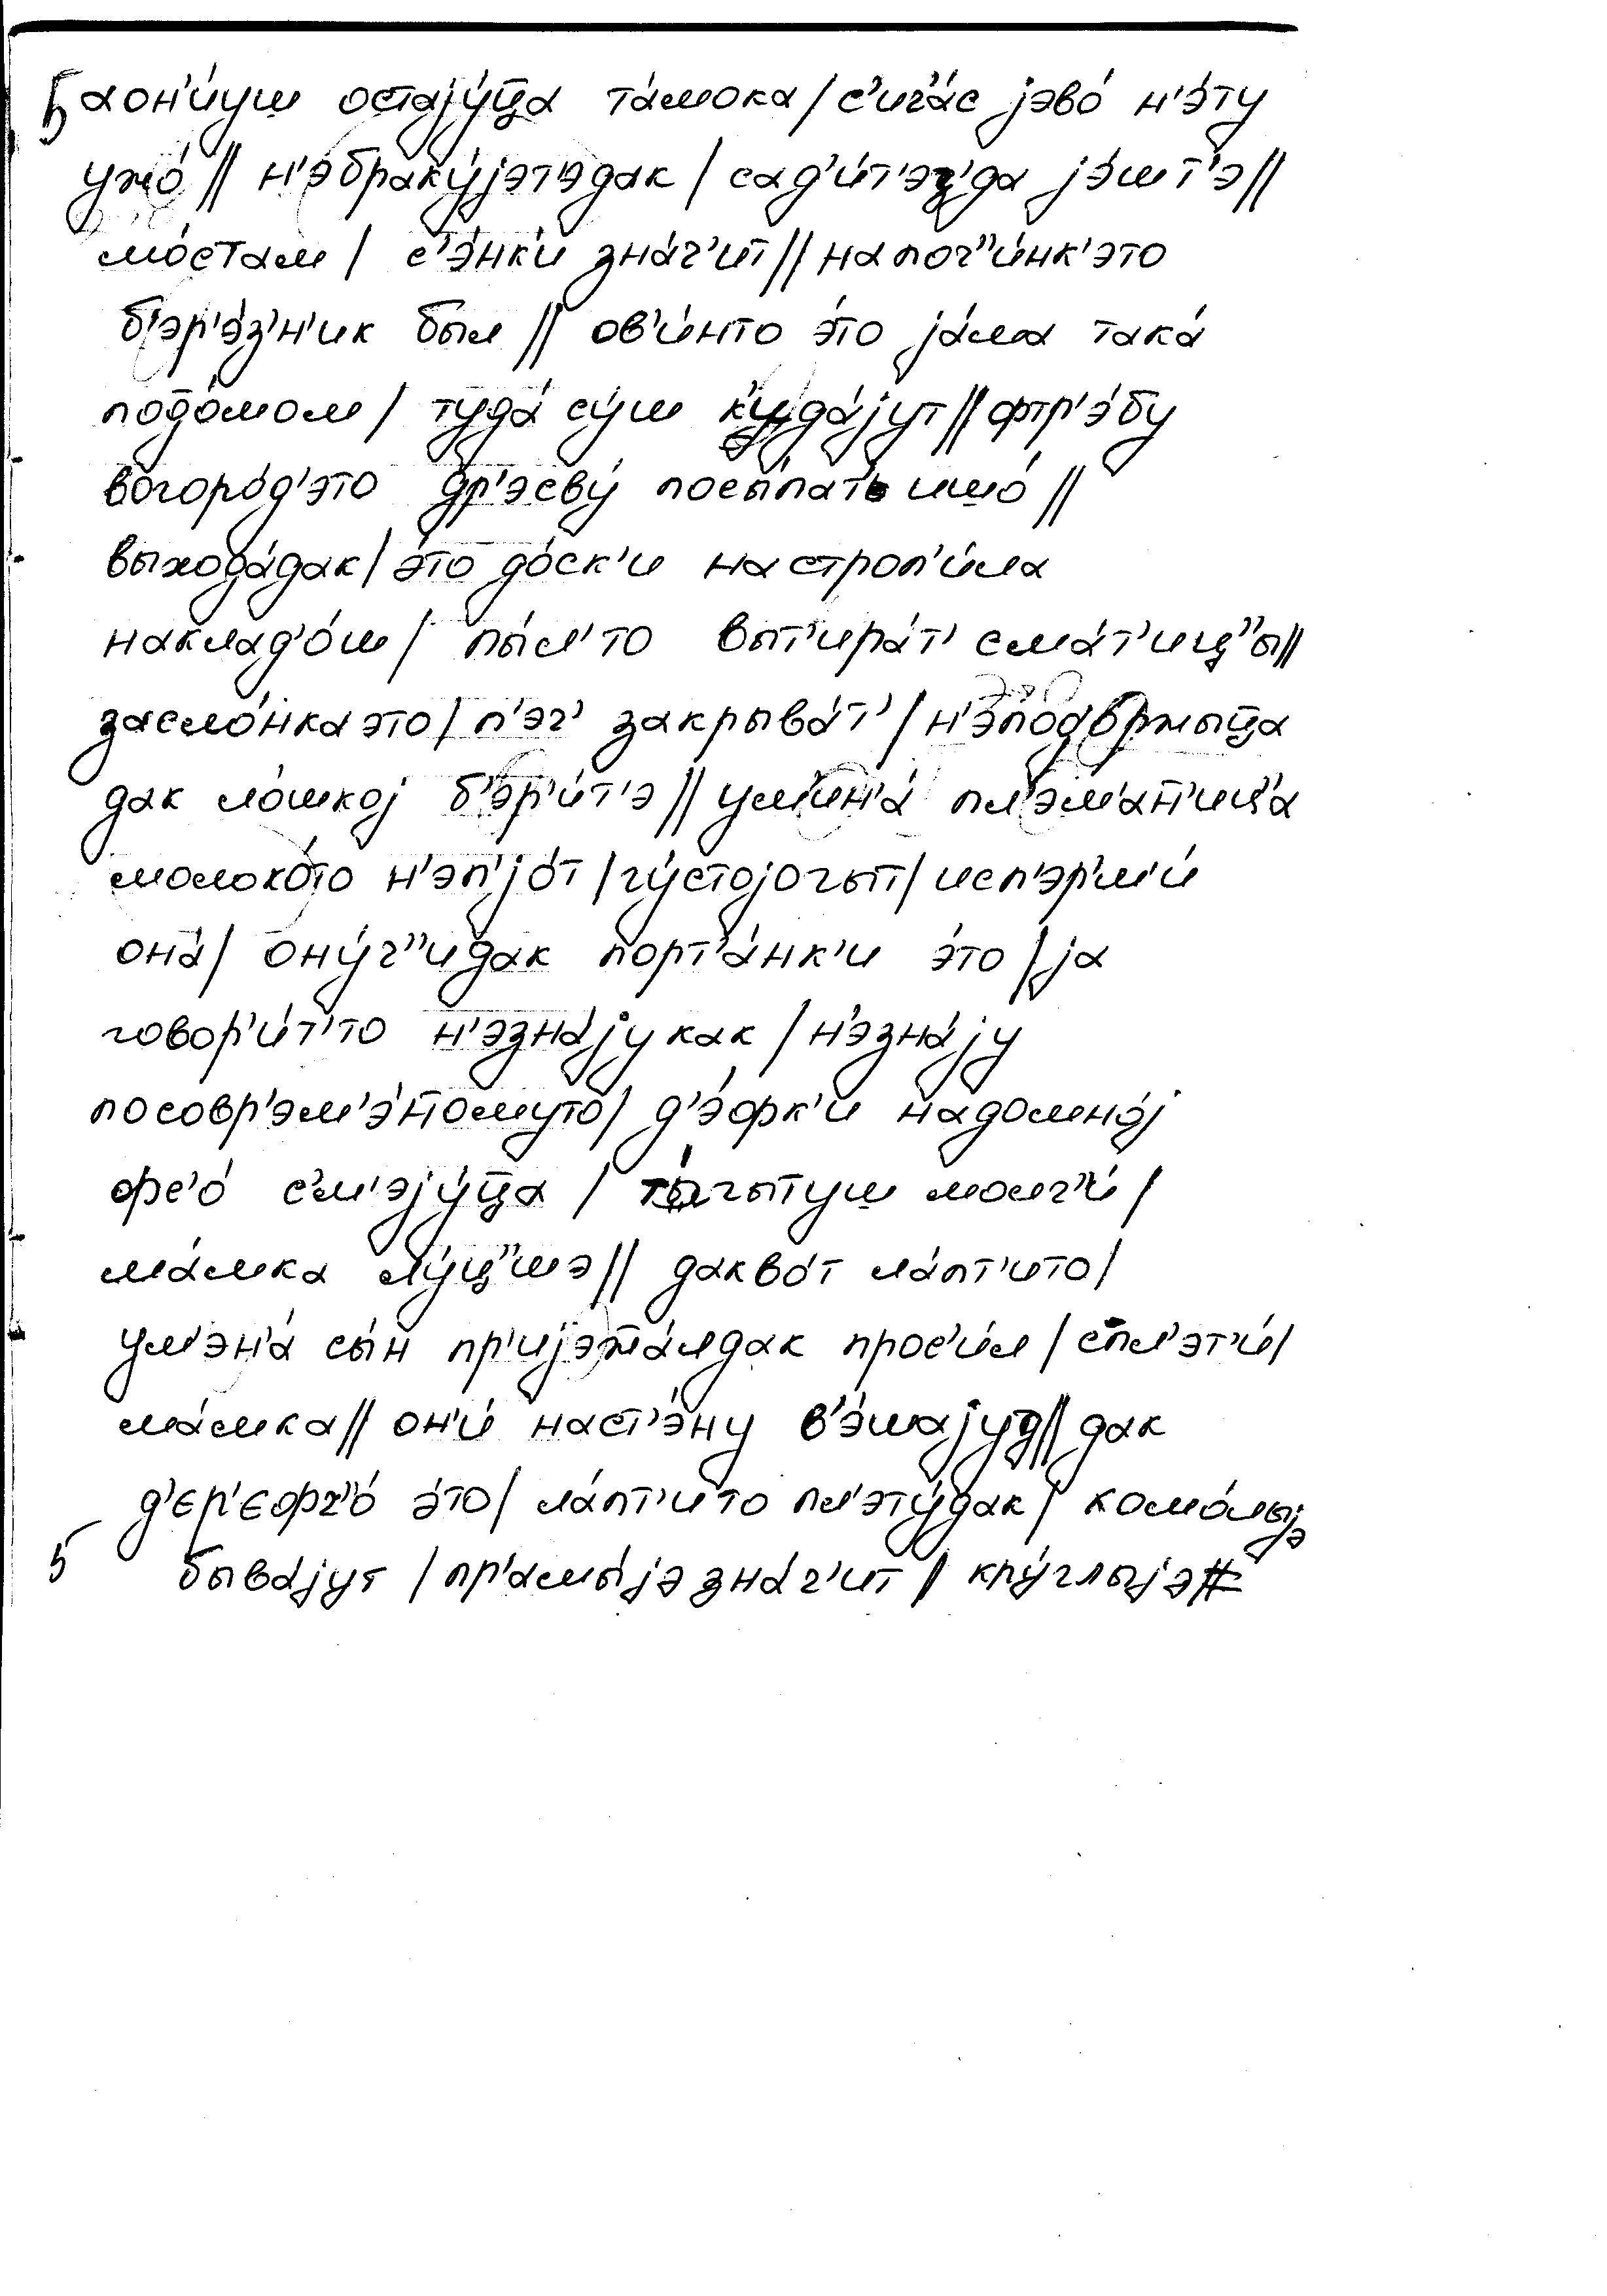 аон'и́уш остаjу́ц̄а та́мока / с'ич'а́с jэво́ н'э́ту
ужо́ // н'эбраку́jэт'эдак / сад'и́т'э да jэ́шт'э //
мо́стам / с'э́нк'и зна́ч'ит // напоч"и́нк'это
б'эр'э́з'н'ик был // ов'и́нто э́то jа́ма така́
подо́мом / туда́ су́ш // фтр'э́бу
вогоро́д'это др'эсву́ посы́пат' ишшо́ //
выхода́дак / э́то до́ск'и настроп'и́ла
наклад'о́ш / пы́л'то выт'ира́т' сма́т'иц"ы //
засло́нкаэто / п'эч' закрыва́т' / н'эподоржыц̄а
дак ло́шкоj б'эр'и́т'э // ум'ин'а́ пл'эм'а́н'иц'а
молоко́то н'эп'jо́т / гу́стоjогыт / исп'эр'м'и́
она́ / ону́ч"идак порт'а́нк'и э́то / jа
говор'и́т'то н'эзна́jу как / н'эзна́jу
посовр'эм'э́н̄омуто / д'э́фк'и надомно́j
фс'о́ с'м'эjу́ц̄а / ты́гытуш молч'и́ /
ма́мка лу́ц"шэ // дакво́т ла́пт'ито /
ум'эн'а́ сы́н пр'иjэж̄а́лдак прос'и́л / спл'эт'и́ /
ма́мка // он'и́ наст'э́ну в'э́шаjуд // дак
э́то / ла́пт'ито пл'эту́дак / комо́лыjэ
быва́jут / пр'амы́jэ зна́ч'ит / кру́глыjэ #